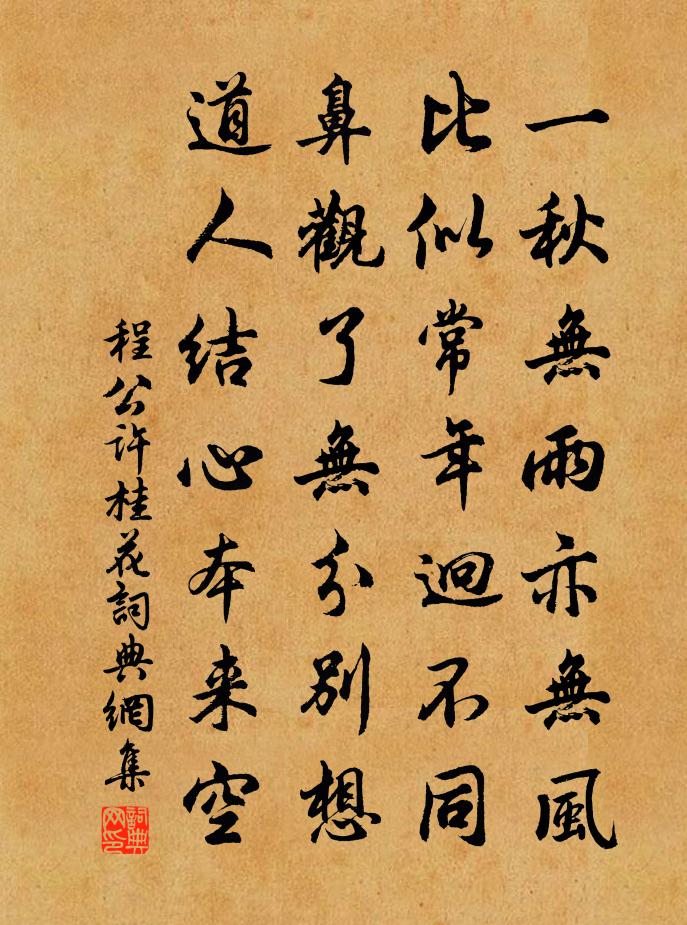 一秋無雨亦無風
比似常年迥不同
鼻觀了無分別想
道人結心本来空
程公许桂花詞典網集
詞典网印